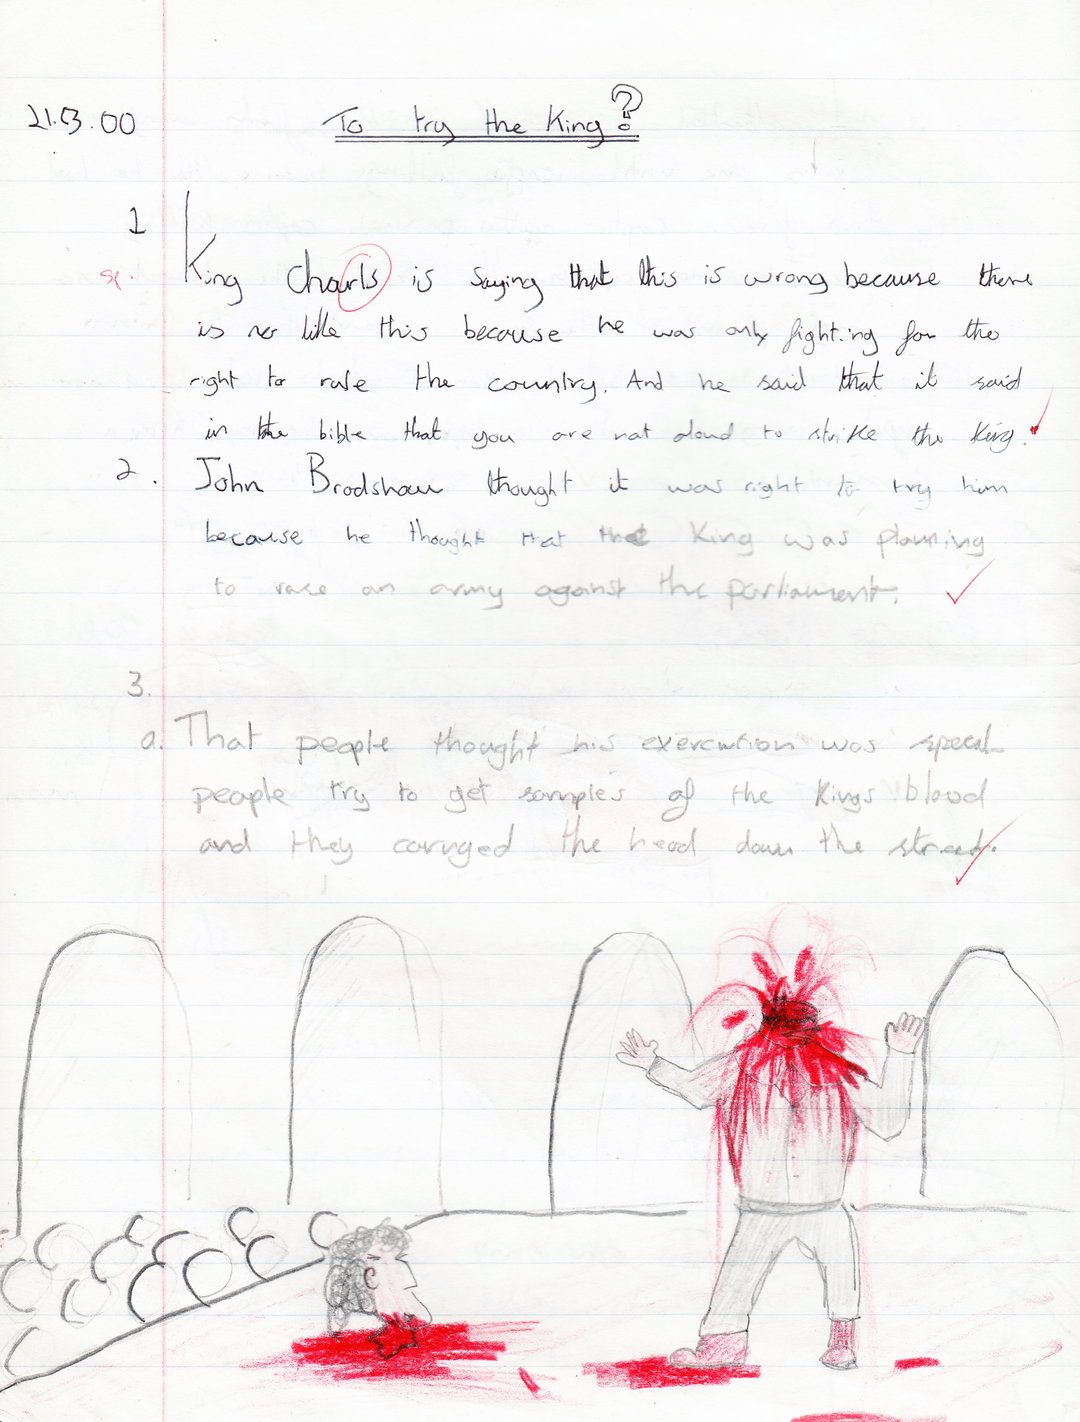 21.3.00
To try the King?
1
sp. King Charls is saying that this is wrong because there
is no like this because he was only fighting for the
right to rule the country. And he said that it said
in the bible that you are not aloud to strike the King.
2. John Bradshaw thought it was right to try him
because he thought that the King was planning
to rase an army against the parliament.
3.
a. That people thought his was special
people try to get samples of the Kings blood
and they carryed the head down the street.